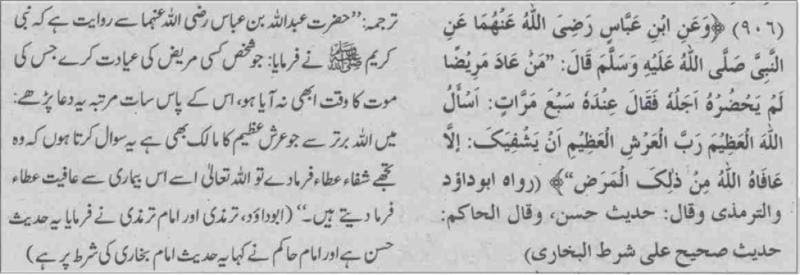 (٩٠٦) ﴿وَعَنِ ابْنِ عَبَّاسٍ رَضِیَ اللّٰهُ عَنْهُمَا عَنِ
النَّبِیِّ صَلَّی اللّٰهُ عَلَیْهِ وَسَلَّمَ قَالَ: "مَنْ عَادَ مَرِیْضًا
لَمْ یَحْضُرْهُ اَجَلُهٗ فَقَالَ عِنْدَهٗ سَبْعَ مَرَّاتٍ: اَسْأَلُ
اللّٰهَ الْعَظِیْمَ رَبَّ الْعَرْشِ الْعَظِیْمِ اَنْ یَّشْفِیَکَ: اِلَّا
عَافَاهُ اللّٰهُ مِنْ ذٰلِکَ الْمَرَضِ"﴾ (رواه ابوداؤد
والترمذی وقال: حدیث حسن، وقال الحاکم:
حدیث صحیح علی شرط البخاری)
ترجمہ: "حضرت عبداللہ بن عباس رضی اللہ عنہما سے روایت ہے کہ نبی
کریم ﷺ نے فرمایا: جو شخص کسی مریض کی عیادت کرے جس کی
موت کا وقت ابھی نہ آیا ہو، اس کے پاس سات مرتبہ یہ دعا پڑھے:
میں اللہ برتر سے جو عرش عظیم کا مالک بھی ہے یہ سوال کرتا ہوں کہ وہ
تجھے شفاء عطاء فرمادے تو اللہ تعالیٰ اسے اس بیماری سے عافیت عطاء
فرما دیتے ہیں۔" (ابوداؤد، ترمذی اور امام ترمذی نے فرمایا یہ حدیث
حسن ہے اور امام حاکم نے کہا یہ حدیث امام بخاری کی شرط پر ہے)